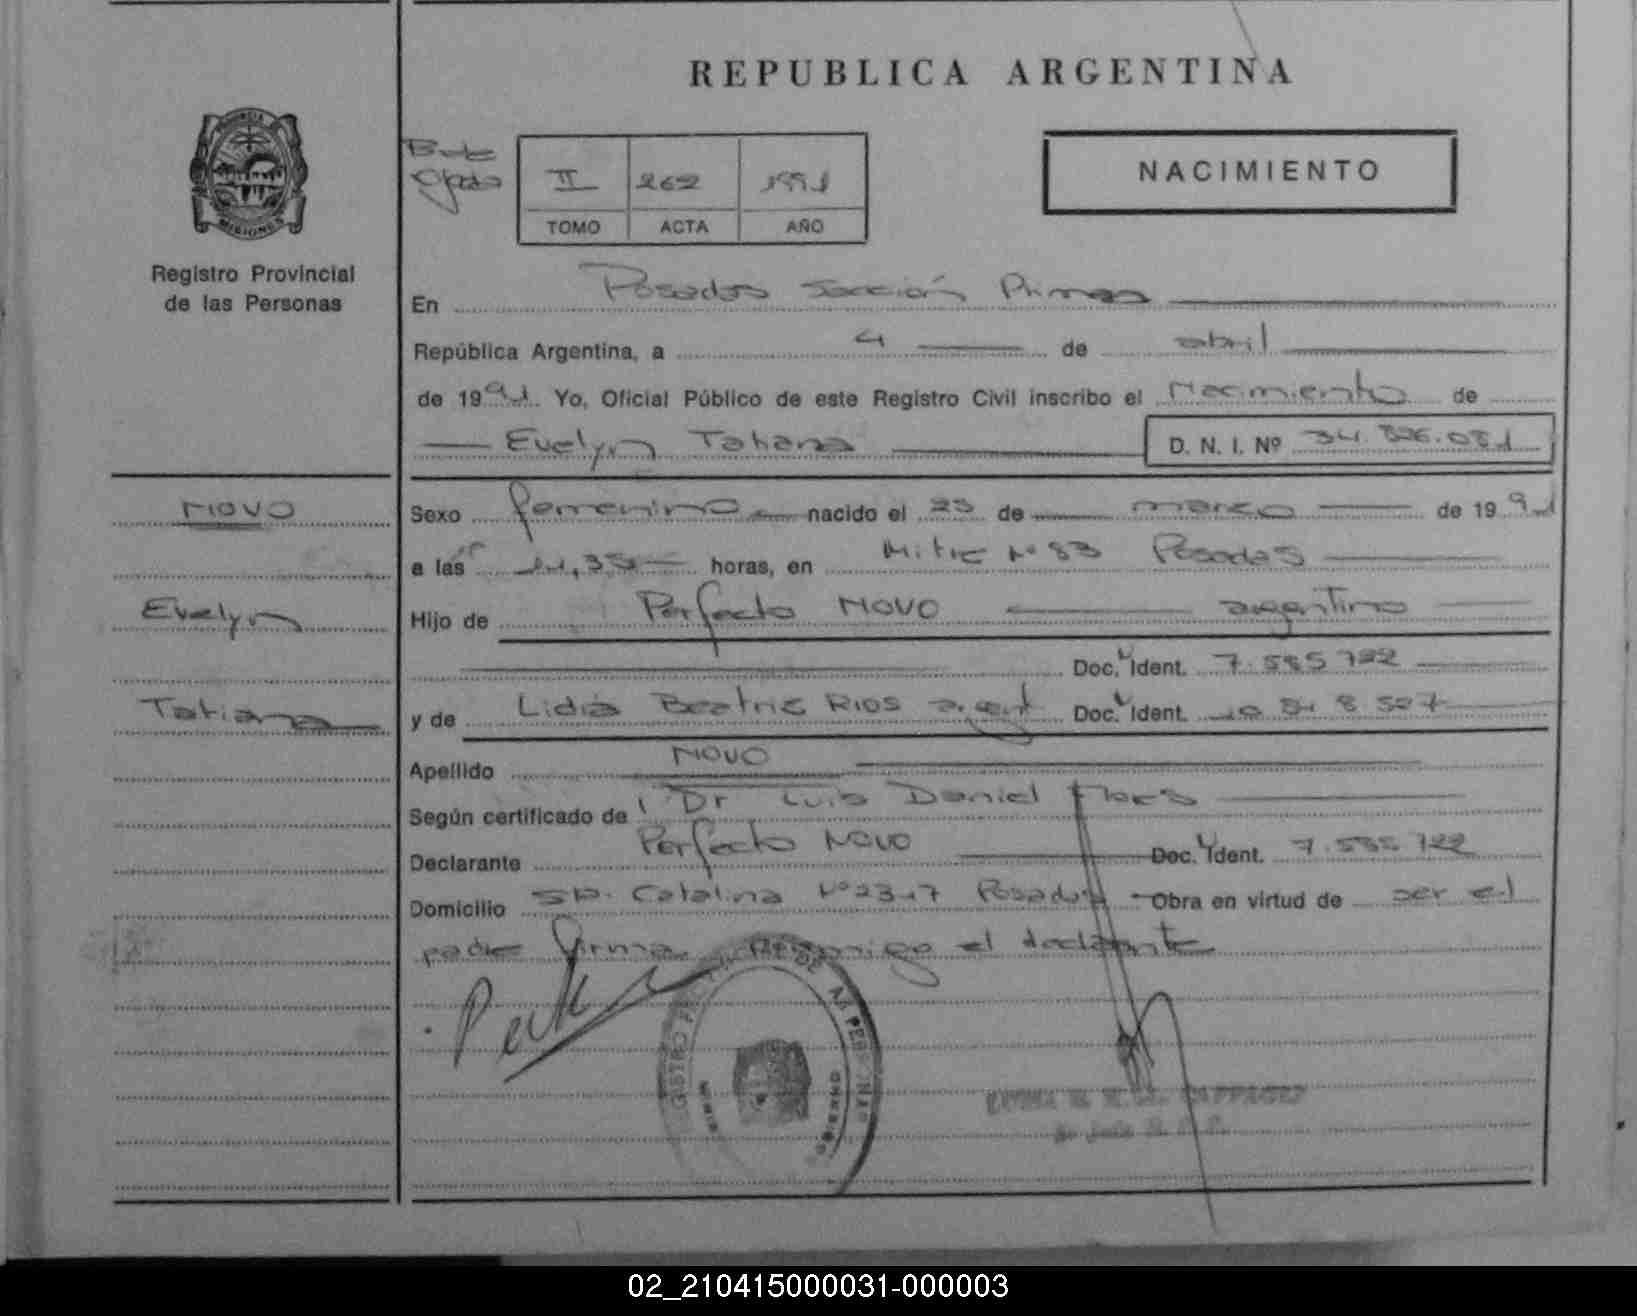 REPUBLICA ARGENTINA
NACIMIENTO
II 262 1991
TOMO ACTA AÑO
MISIONES
Registro Provincial
de las Personas
En Posadas Sección Primera
República Argentina, a 4 de abril
de 1991. Yo, Oficial Público de este Registro Civil inscribo el Nacimiento de
Evelyn Tatiana D. N. I. Nº
NOVO
Sexo femenino nacido el 23 de marzo de 1991
a las horas, en Mitre Nº 83 Posadas
Evelyn
Hijo de Perfecto NOVO argentino
Doc. Ident. 7.585 722
Tatiana
y de Lidia Beatriz RIOS argent Doc. Ident.
Apellido NOVO
Según certificado de Dr Luis Daniel Flores
Declarante Perfecto NOVO Doc. Ident. 7.585 722
Domicilio Sta. Catalina Nº 2317 Posadas Obra en virtud de ser el
padre firma conmigo el declarante
02_210415000031-000003